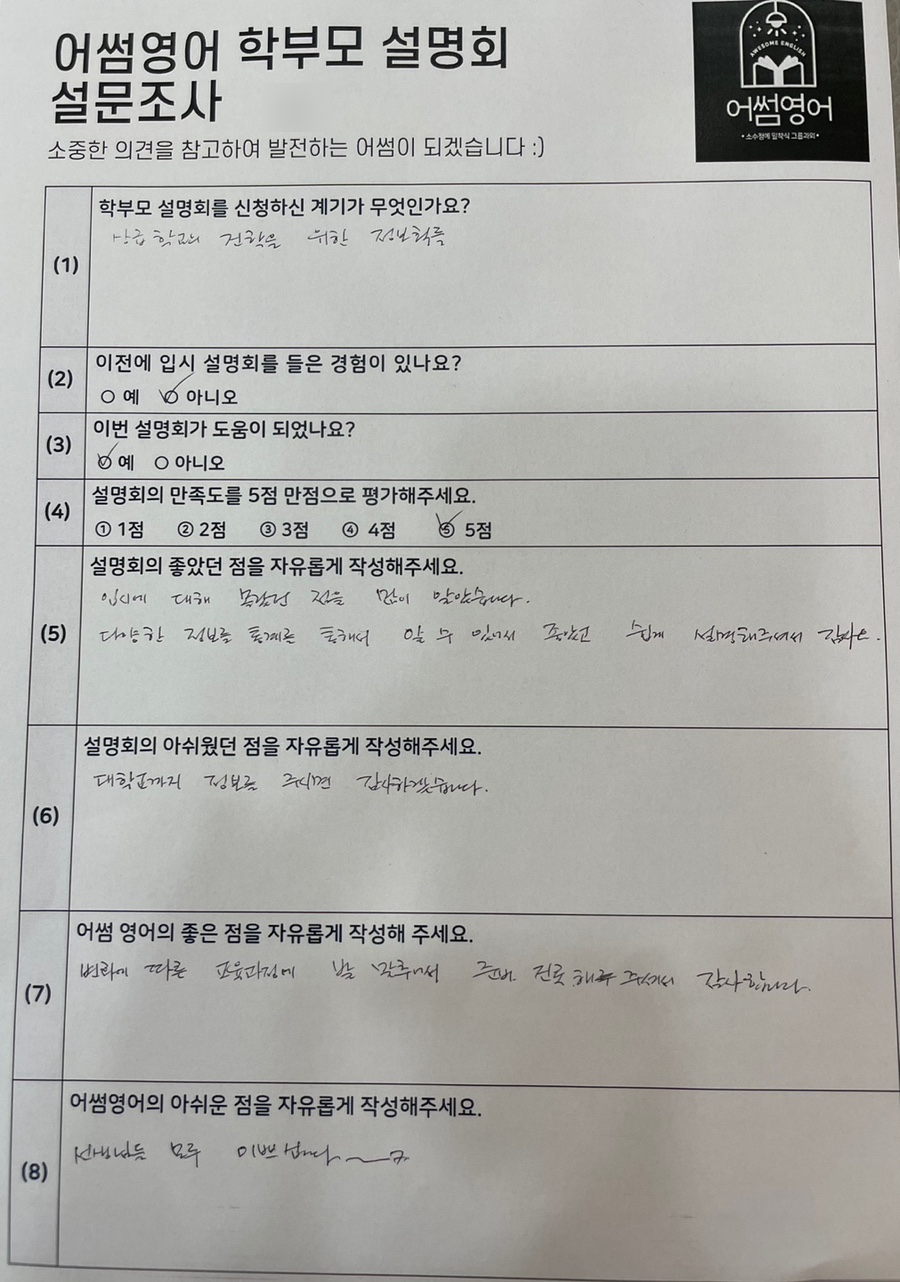 어썸영어 학부모 설명회
설문조사
소중한 의견을 참고하여 발전하는 어썸이 되겠습니다 :)
AWESOME ENGLISH
어썸영어
• 소수정예 밀착식 그룹과외 •
(1)
학부모 설명회를 신청하신 계기가 무엇인가요?
상급 학교의 진학을 위한 정보획득
(2)
이전에 입시 설명회를 들은 경험이 있나요?
○ 예 ○ 아니오
(3)
이번 설명회가 도움이 되었나요?
○ 예 ○ 아니오
(4)
설명회의 만족도를 5점 만점으로 평가해주세요.
① 1점 ② 2점 ③ 3점 ④ 4점 ⑤ 5점
(5)
설명회의 좋았던 점을 자유롭게 작성해주세요.
입시에 대해 몰랐던 점을 많이 알았습니다.
다양한 정보를 통계를 통해서 알 수 있어서 좋았고 쉽게 설명해주셔서 감사요.
(6)
설명회의 아쉬웠던 점을 자유롭게 작성해주세요.
대학교까지 정보를 주시면 감사하겠습니다.
(7)
어썸 영어의 좋은 점을 자유롭게 작성해 주세요.
변화에 따른 교육과정에 발 맞추어서 준비 주셔서 감사합니다.
(8)
어썸영어의 아쉬운 점을 자유롭게 작성해주세요.
선생님들 모두 이쁘십니다